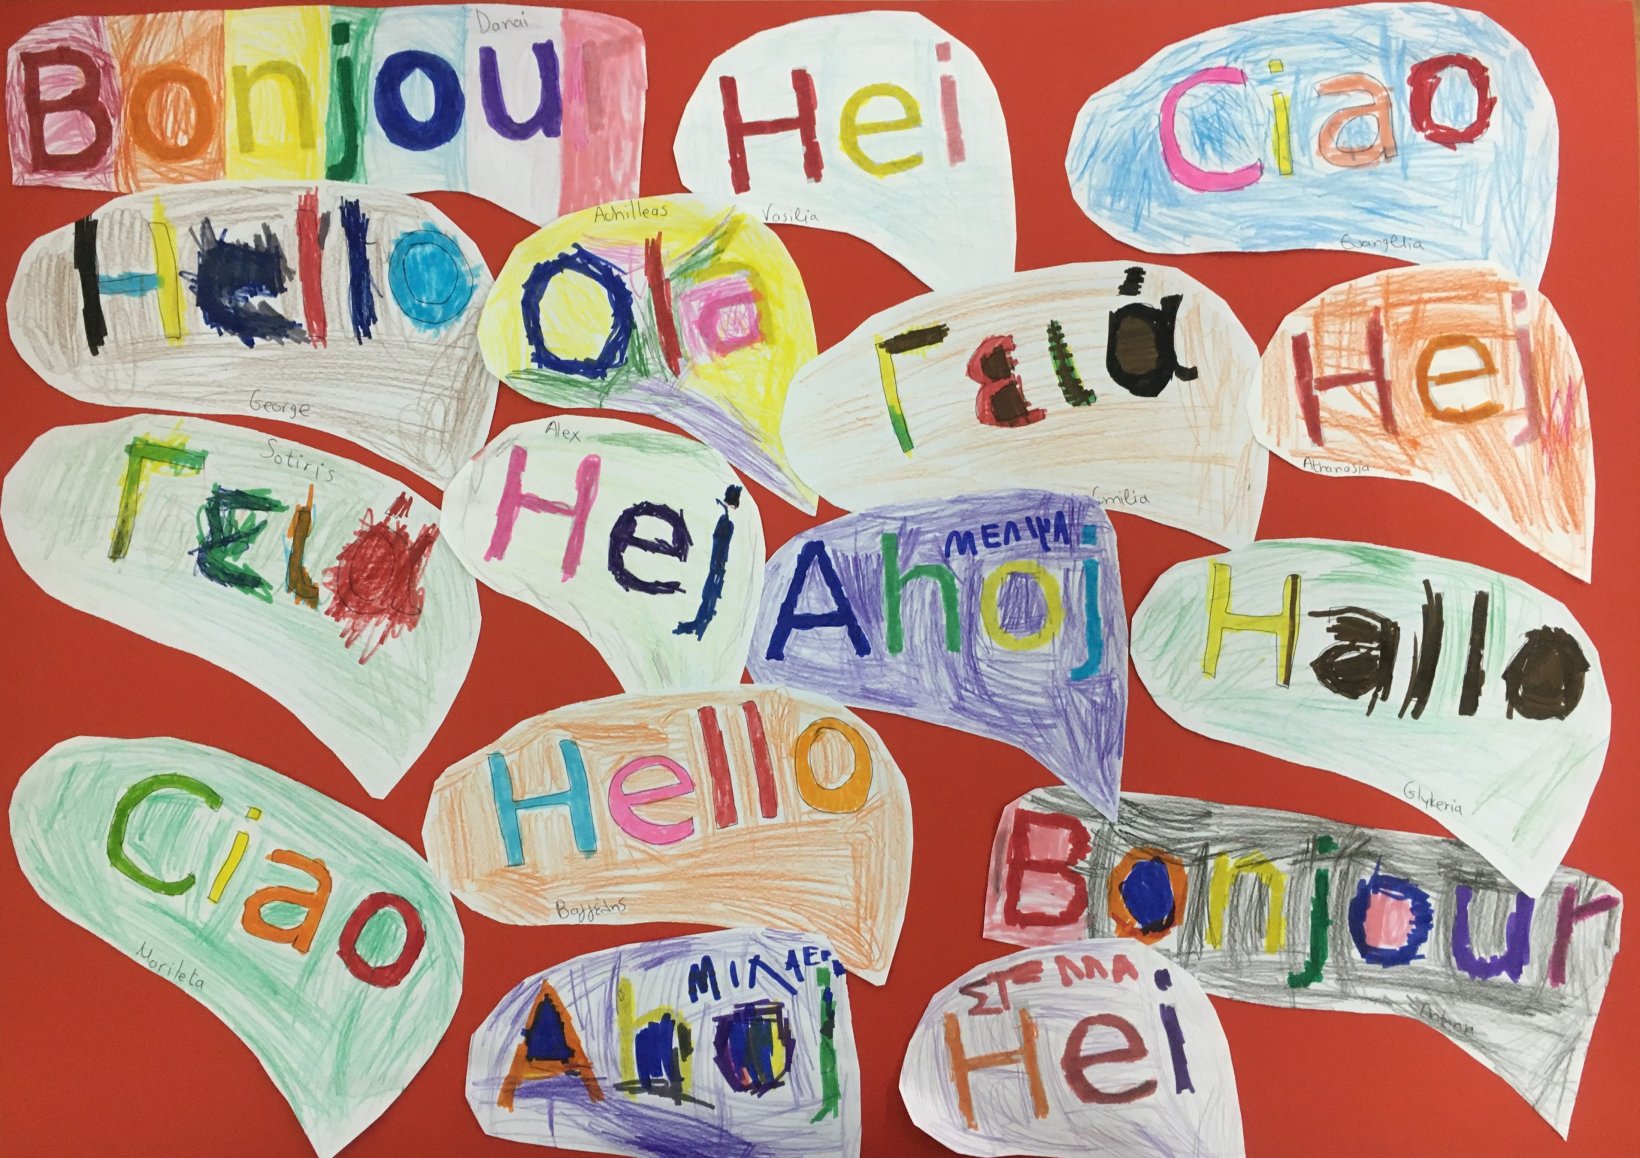 Danai
Bonjour
Hei
Vasilia
Ciao
Evangelia
Hello
George
Achilleas
Ola
Γειά
Emilia
Hej
Athanasia
Sotiris
Γειά
Alex
Hej
ΜΕΛΙΝΑ
Ahoj
Hallo
Glykeria
Ciao
Marileta
Hello
Βαγγέλης
Bonjour
Anton
Ahoj
ΣΤΕΛΛΑ
Hei